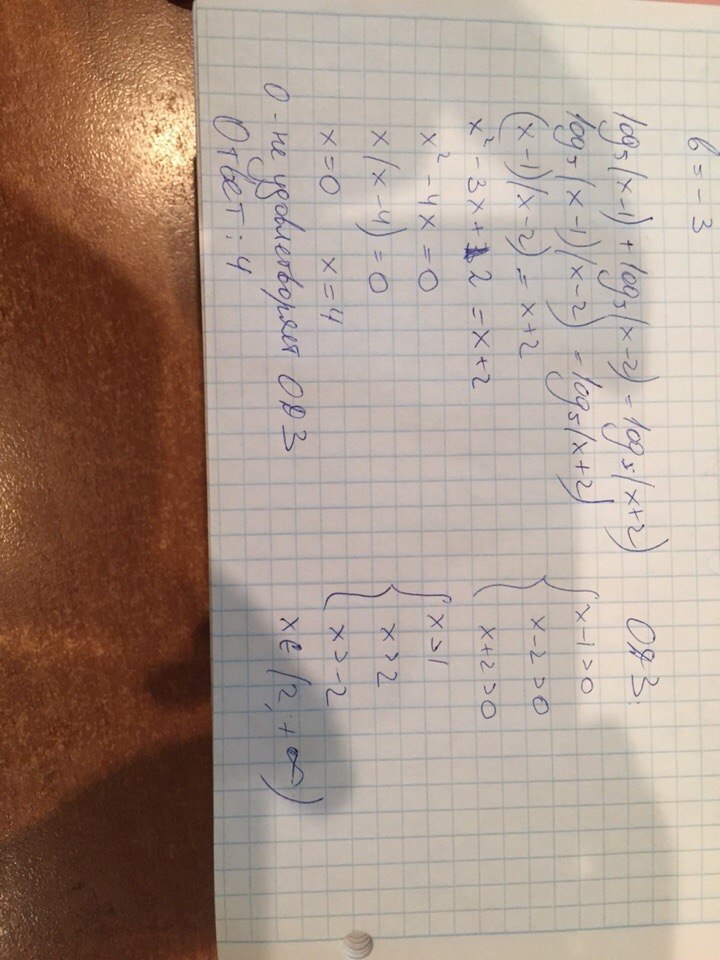 b = -3
log₅(x-1) + log₅(x-2) = log₅(x+2)
log₅(x-1)(x-2) = log₅(x+2)
(x-1)(x-2) = x+2
x² - 3x + 2 = x+2
x² - 4x = 0
x(x-4) = 0
x=0 x=4
0 - не удовлетворяет ОДЗ
Ответ: 4
ОДЗ:
{ x-1>0
x-2>0
x+2>0
{ x>1
x>2
x>-2
x∈(2; +∞)